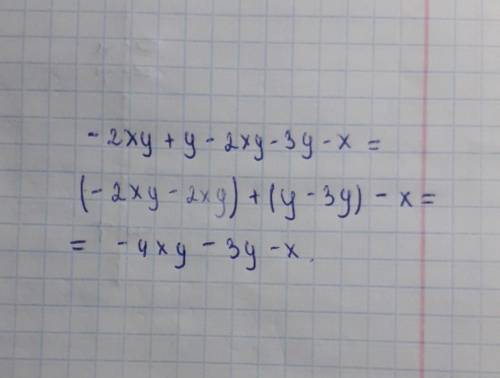 -2xy + y - 2xy - 3y - x =
(-2xy - 2xy) + (y - 3y) - x =
= -4xy - 3y - x.